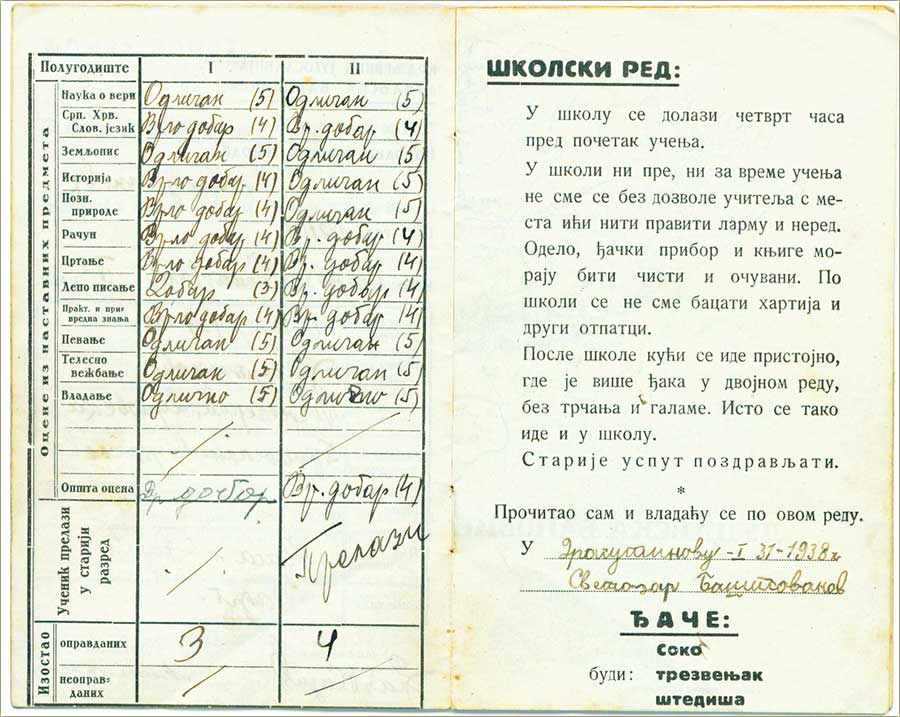 Полугодиште I II
Оцене из наставних предмета
Наука о вери Одличан (5) Одличан (5)
Срп. Хрв. Слов. језик Врло добар (4) Вр. добар (4)
Земљопис Одличан (5) Одличан (5)
Историја Врло добар (4) Одличан (5)
Позн. природе Врло добар (4) Одличан (5)
Рачун Врло добар (4) Вр. добар (4)
Цртање Врло добар (4) Вр. добар (4)
Лепо писање Добар (3) Вр. добар (4)
Практ. и привредна знања Врло добар (4) Вр. добар (4)
Певање Одличан (5) Одличан (5)
Телесно вежбање Одличан (5) Одличан (5)
Владање Одлично (5) Одлично (5)
Општа оцена Вр. добар Вр. добар (4)
Ученик прелази у старији разред / Прелази
Изостао
оправданих 3 4
неоправданих / /
ШКОЛСКИ РЕД:
У школу се долази четврт часа
пред почетак учења.
У школи ни пре, ни за време учења
не сме се без дозволе учитеља с ме-
ста ићи нити правити ларму и неред.
Одело, ђачки прибор и књиге мо-
рају бити чисти и очувани. По
школи се не сме бацати хартија и
други отпатци.
После школе кући се иде пристојно,
где је више ђака у двојном реду,
без трчања и галаме. Исто се тако
иде и у школу.
Старије успут поздрављати.
*
Прочитао сам и владаћу се по овом реду.
У -I 31-1938 г
Светозар Баштованов
ЂАЧЕ:
соко
буди: трезвењак
штедиша